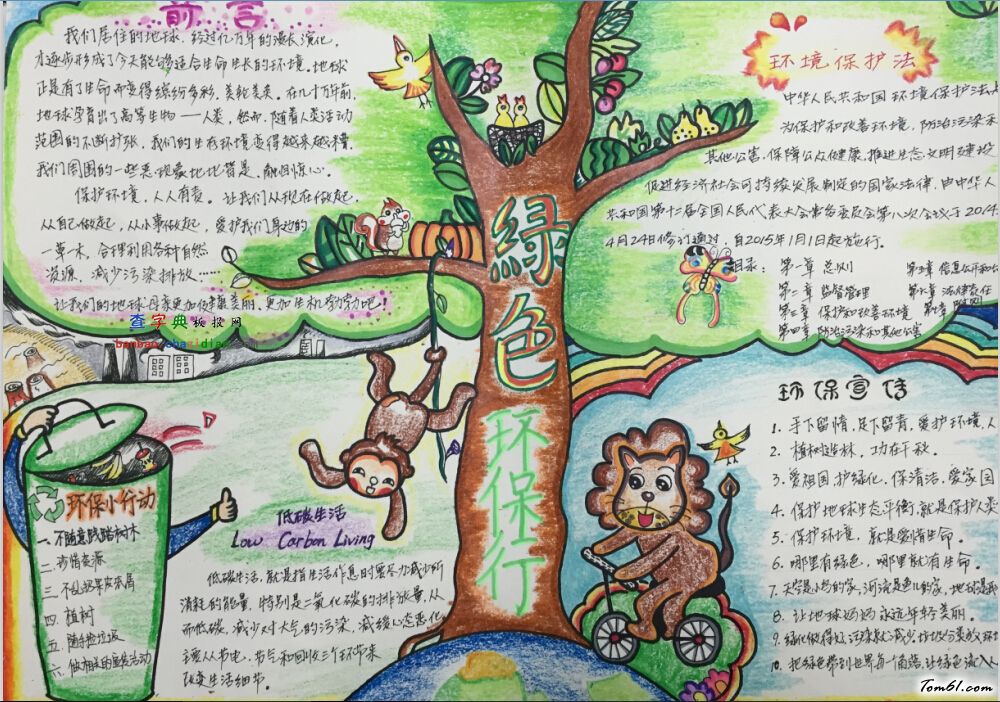 前言
我们居住的地球，经过亿万年的漫长演化，
才逐步形成了今天能够适合生命生长的环境。地球
正是有了生命而变得缤纷多彩，美轮美奂。在几十万年前，
地球孕育出了高等生物——人类，然而，随着人类活动
范围的不断扩张，我们的生存环境变得越来越糟，
我们周围的一些恶现象地地皆是，触目惊心。
保护环境，人人有责。让我们从现在做起，
从自己做起，从小事做起，爱护我们身边的
一草一木，合理利用各种自然
资源，减少污染排放……
让我们的地球母亲更加健康美丽，更加生机勃勃吧！
查字典板报网
環境保护法
中华人民共和国环境保护法是
为保护和改善环境，防治污染和
其他公害，保障公众健康，推进生态文明建设，
促进经济社会可持续发展制定的国家法律，由中华人民
共和国第十二届全国人民代表大会常务委员会第八次会议于2014
4月24日修订通过，自2015年1月1日起施行。
目录： 第一章 总则 第五章 信息公开和
第二章 监督管理 第六章 法律责任
第三章 保护和改善环境 第七章 附则
第四章 防治污染和其他公害
綠色环保行
环保小行动
一、不随意践踏树木
二、珍惜资源
三、不乱扔果皮纸屑
四、植树
五、随手捡垃圾
六、做相关的宣传活动
低碳生活
Low Carbon Living
低碳生活，就是指生活作息时要尽力减少所
消耗的能量，特别是二氧化碳的排放量，从
而低碳，减少对大气的污染，减缓生态恶化，
主要从节电、节气和回收三个环节来
改变生活细节。
环保宣传
1. 手下留情，足下留青，爱护环境，人
2. 植树造林，功在千秋。
3. 爱祖国 护绿化，保清洁，爱家园
4. 保护地球生态平衡，就是保护人类
5. 保护环境，就是爱惜生命。
6. 哪里有绿色，哪里就有生命。
7. 天空是小鸟的家，河流是鱼儿的家，地球是我
8. 让地球妈妈永远年轻美丽。
9. 绿化做得好，污染就减少，垃圾
10. 把绿色带到世界每一个角落，让绿色流入人
Tom61.com